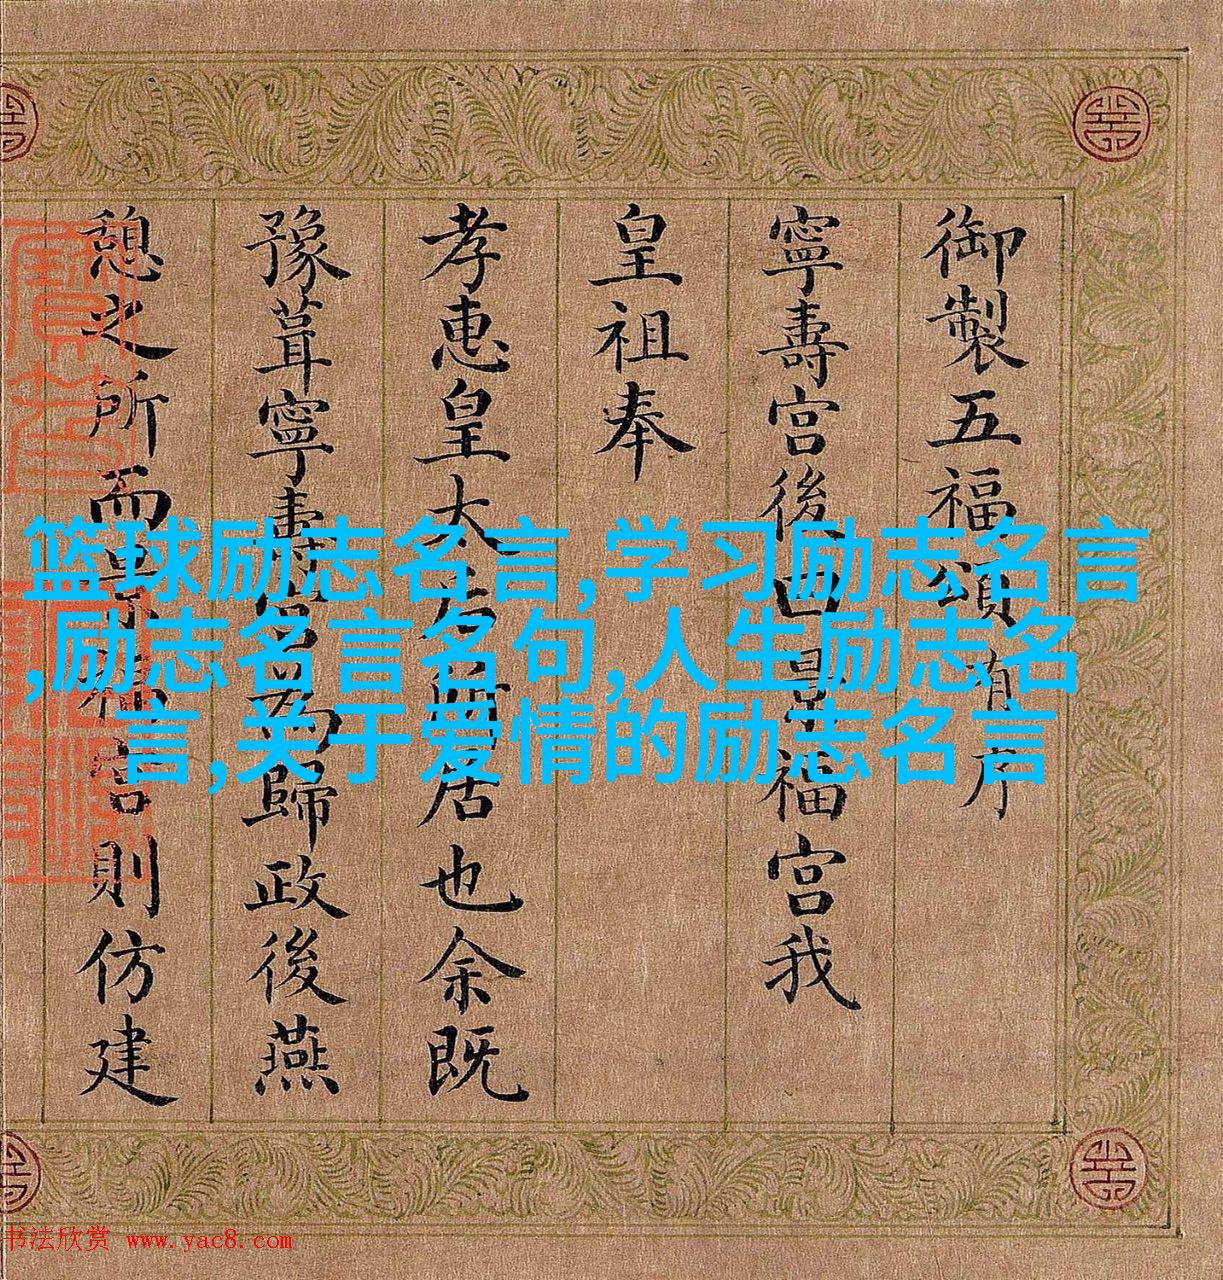 御製五福頌有序
寧壽宮後曰景福宮我
皇祖奉
孝惠皇太后所居也余既
豫葺寧壽宮為歸政後燕
憩之所而景福宮則仿建
篮球励志名言,学习励志名言
,励志名言名句,人生励志名
言,关于爱情的励志名言
书法欣赏 www.yac8.com